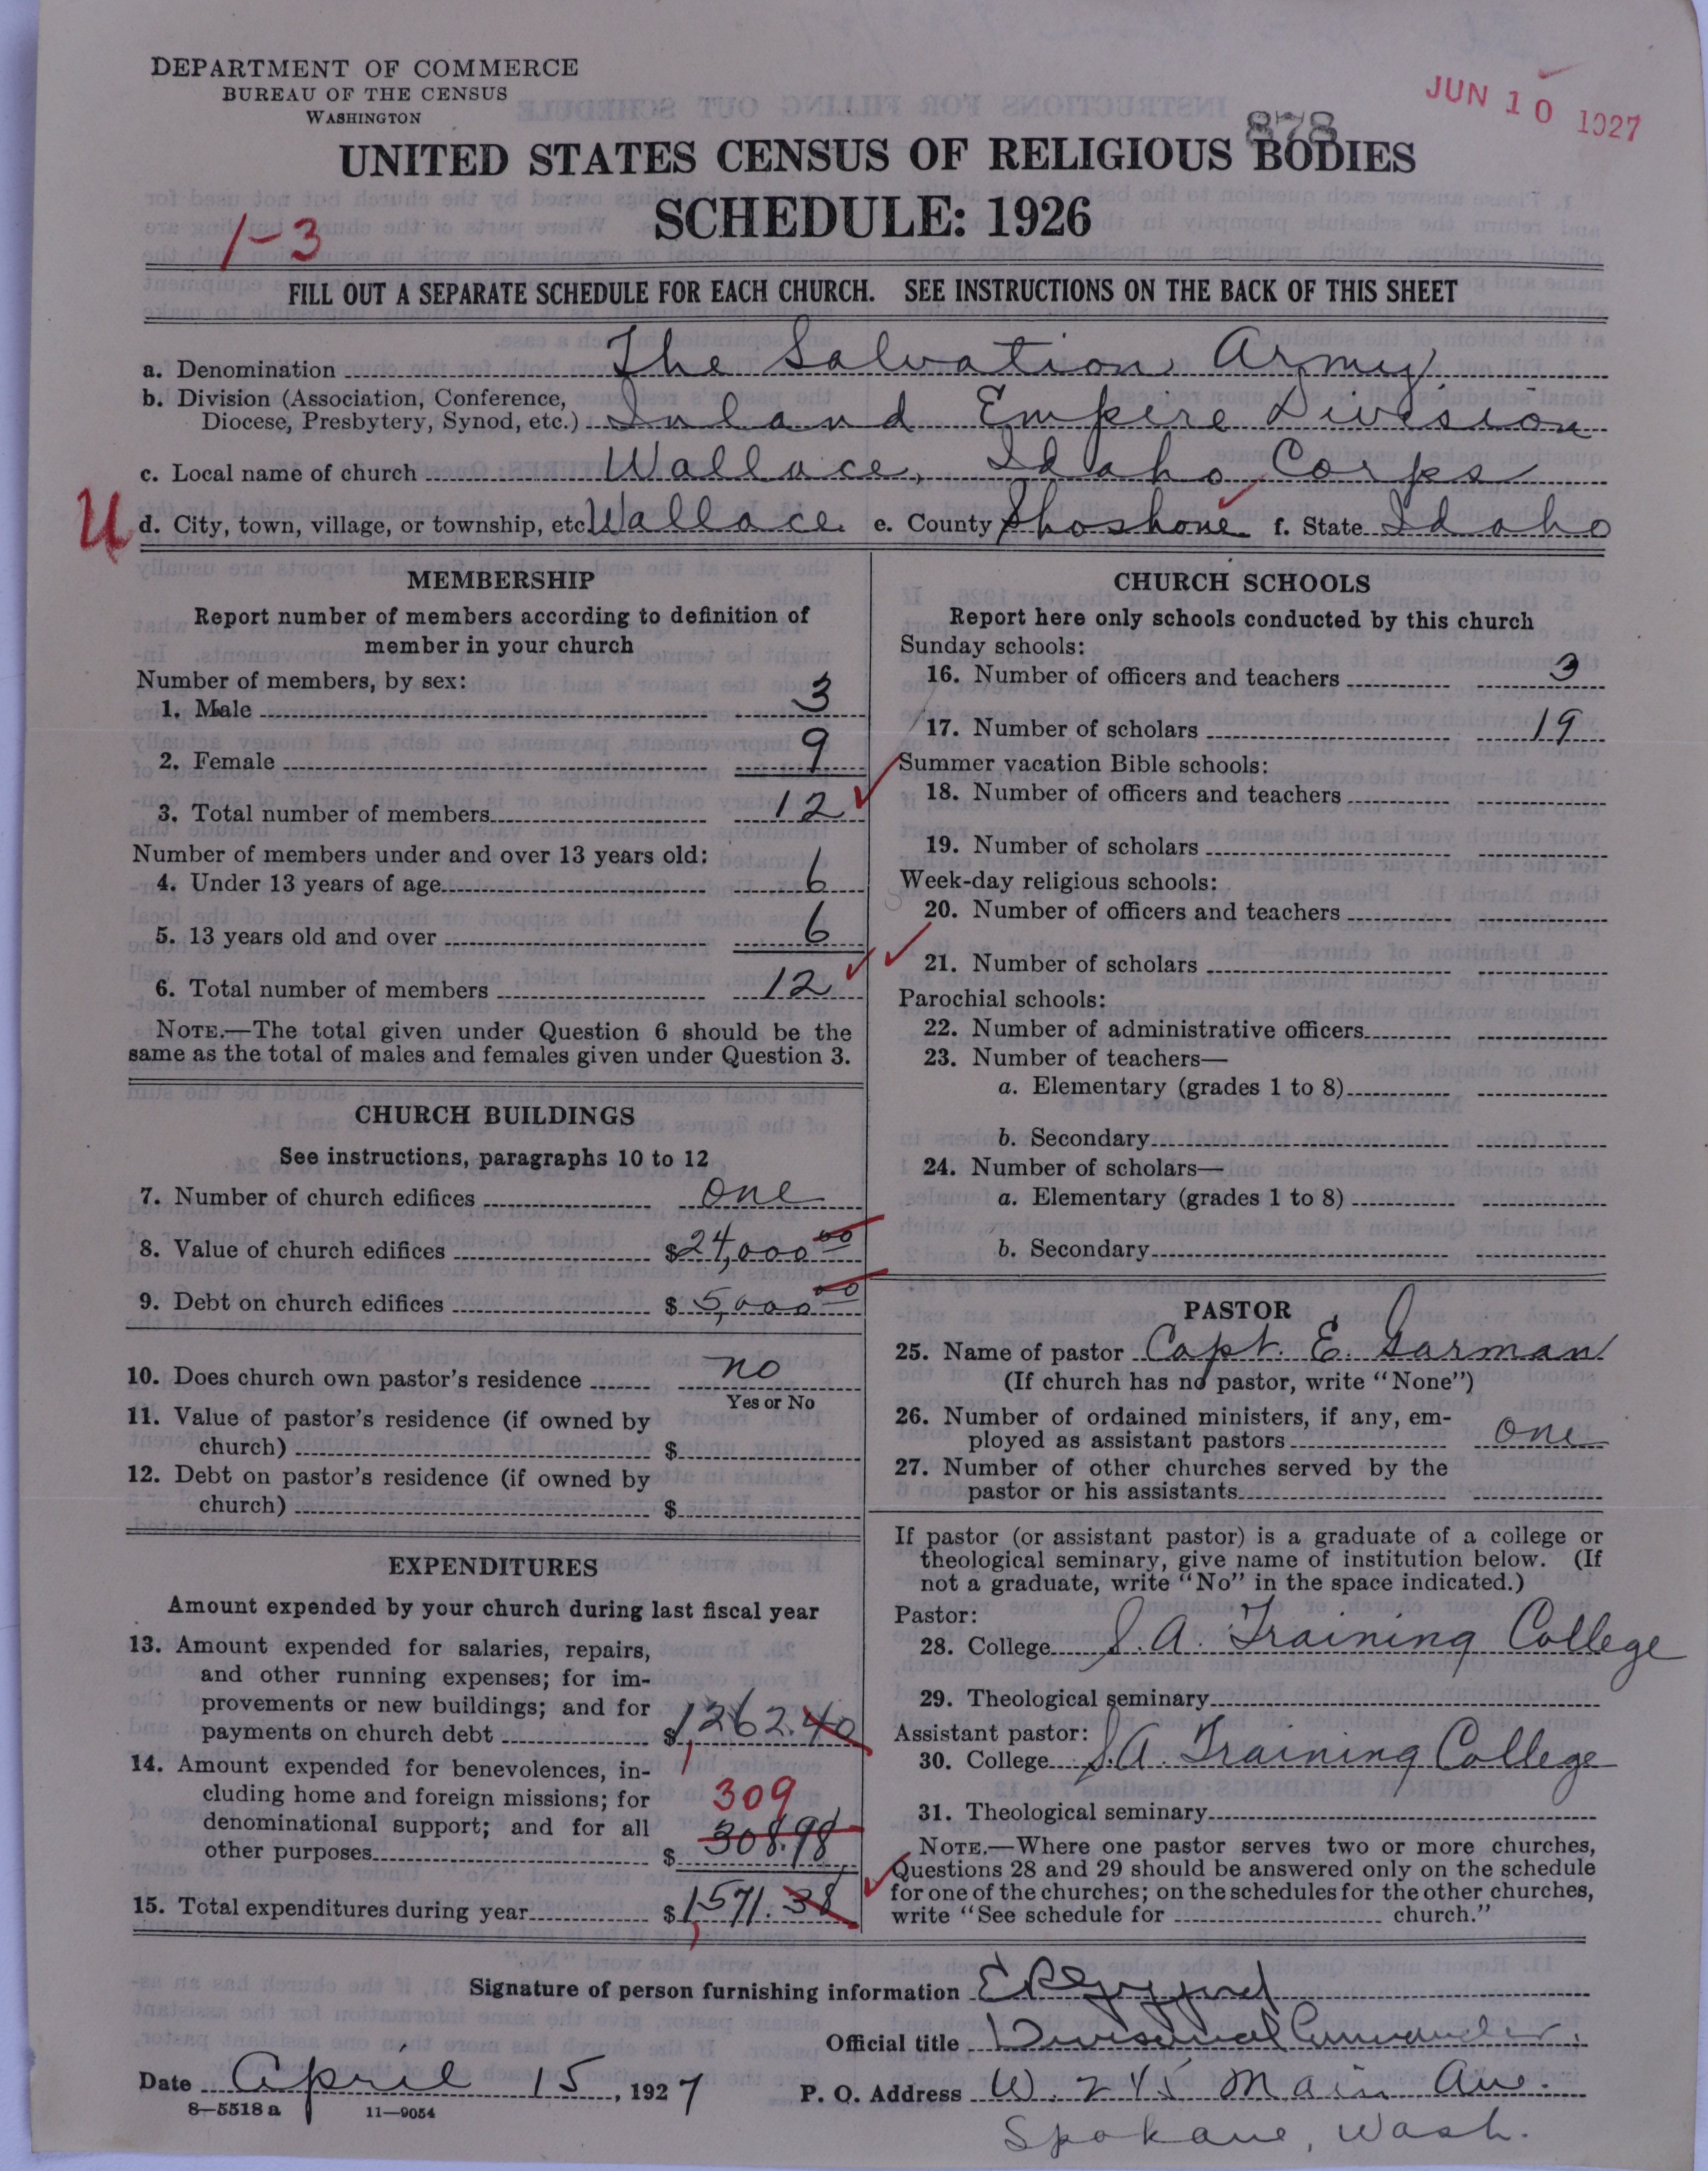 DEPARTMENT OF COMMERCE
BUREAU OF THE CENSUS
WASHINGTON
JUN 10 1927
878
UNITED STATES CENSUS OF RELIGIOUS BODIES
SCHEDULE: 1926
1-3
FILL OUT A SEPARATE SCHEDULE FOR EACH CHURCH. SEE INSTRUCTIONS ON THE BACK OF THIS SHEET
a. Denomination The Salvation Army
b. Division (Association, Conference,
Diocese, Presbytery, Synod, etc.) Inland Empire Division
c. Local name of church Wallace, Idaho Corps
U
d. City, town, village, or township, etc. Wallace e. County Shoshone f. State Idaho
MEMBERSHIP
Report number of members according to definition of
member in your church
Number of members, by sex:
1. Male 3
2. Female 9
3. Total number of members 12
Number of members under and over 13 years old:
4. Under 13 years of age 6
5. 13 years old and over 6
6. Total number of members 12
NOTE.—The total given under Question 6 should be the
same as the total of males and females given under Question 3.
CHURCH BUILDINGS
See instructions, paragraphs 10 to 12
7. Number of church edifices one
8. Value of church edifices $24,000 00
9. Debt on church edifices $5,000 00
10. Does church own pastor's residence no
Yes or No
11. Value of pastor's residence (if owned by
church) $
12. Debt on pastor's residence (if owned by
church) $
EXPENDITURES
Amount expended by your church during last fiscal year
13. Amount expended for salaries, repairs,
and other running expenses; for im-
provements or new buildings; and for
payments on church debt $1262.40
14. Amount expended for benevolences, in-
cluding home and foreign missions; for
309
denominational support; and for all
other purposes $308.98
15. Total expenditures during year $1571.38
CHURCH SCHOOLS
Report here only schools conducted by this church
Sunday schools:
16. Number of officers and teachers 3
17. Number of scholars 19
Summer vacation Bible schools:
18. Number of officers and teachers
19. Number of scholars
Week-day religious schools:
20. Number of officers and teachers
21. Number of scholars
Parochial schools:
22. Number of administrative officers
23. Number of teachers—
a. Elementary (grades 1 to 8)
b. Secondary
24. Number of scholars—
a. Elementary (grades 1 to 8)
b. Secondary
PASTOR
25. Name of pastor Capt. E. Sarman
(If church has no pastor, write "None")
26. Number of ordained ministers, if any, em-
ployed as assistant pastors one
27. Number of other churches served by the
pastor or his assistants
If pastor (or assistant pastor) is a graduate of a college or
theological seminary, give name of institution below. (If
not a graduate, write "No" in the space indicated.)
Pastor:
28. College S.A. Training College
29. Theological seminary
Assistant pastor:
30. College S.A. Training College
31. Theological seminary
NOTE.—Where one pastor serves two or more churches,
Questions 28 and 29 should be answered only on the schedule
for one of the churches; on the schedules for the other churches,
write "See schedule for church."
Signature of person furnishing information
Official title Divisional Commander
Date April 15, 1927 P. O. Address W. 245 Main Ave.
8—5518 a 11—9054
Spokane, Wash.